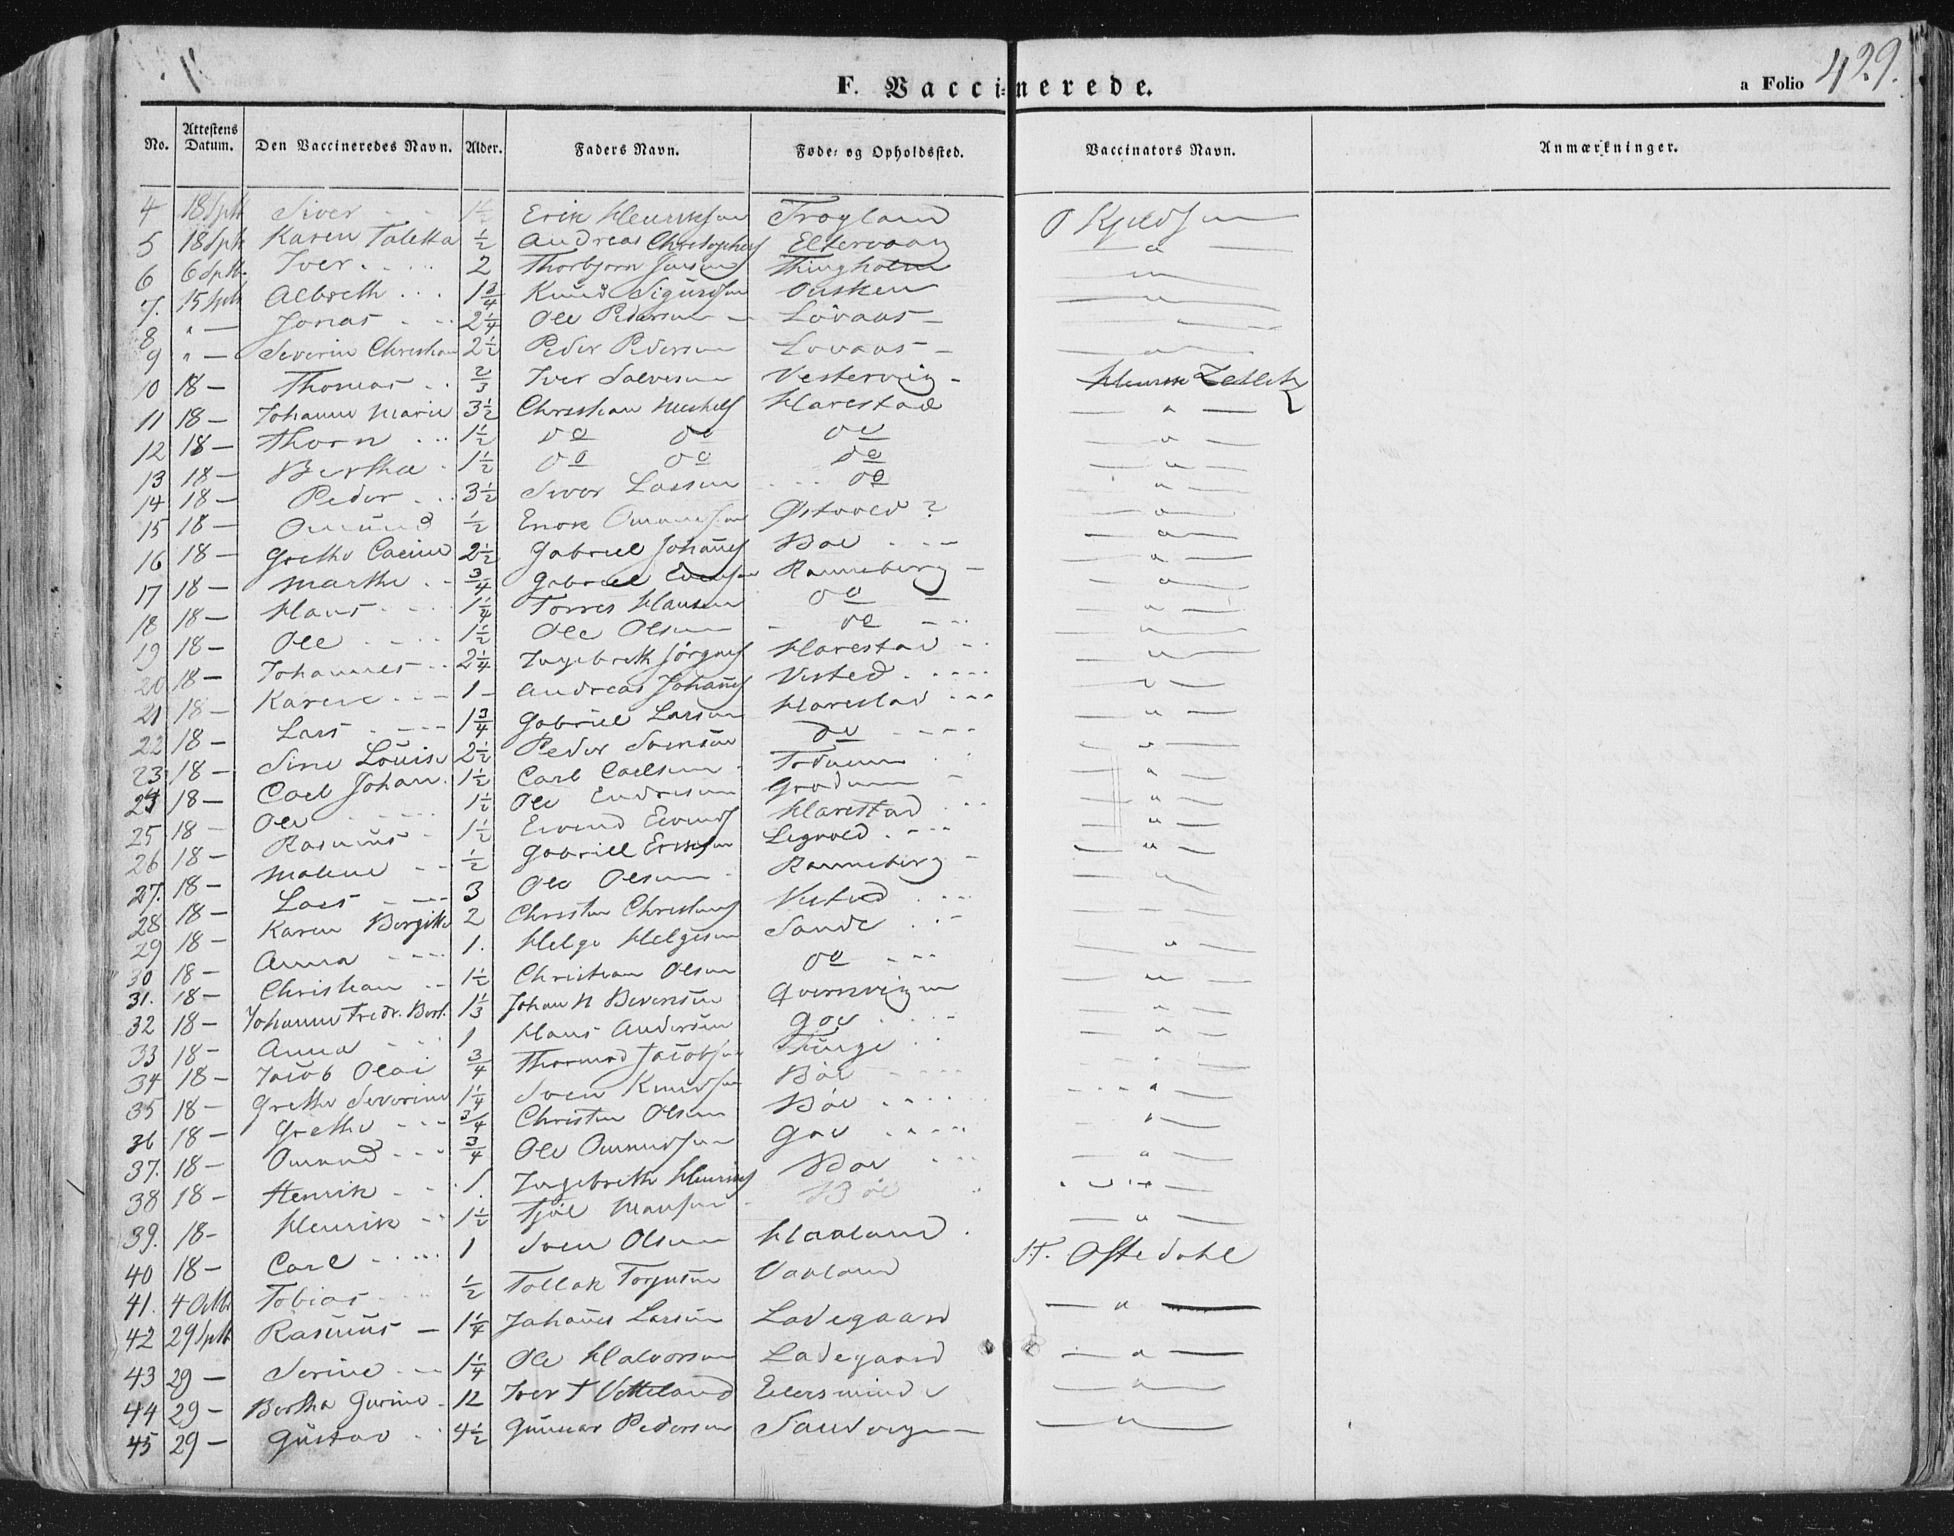 F. Vaccinerede.
a Folio 429.
No. Attestens Datum. Den Vaccineredes Navn. Alder. Faders Navn. Føde- og Opholdssted. Vaccinators Navn. Anmærkninger.
4 18 Sptb Siver 1½ Erik Henriksen Frøyland O Kjeldsen
5 18 Sptb Karen Taletta ½ Andreas Christophers Eltervaag — " —
6 6 Sptb. Iver 2 Thorbjørn Jensen Thingholm — " —
7. 15 Sptb Albreth 1¾ Knud Sigurdsen Ousken — " —
8 " — Jonas 2¼ Ole Pedersen — Lövaas —
9 " — Severin Christian 2½ Peder Pedersen Lovaas — — " —
10 18 — Thomas ⅔ Iver Salvesen Vestervig — Henrik Zetlitz
11 18 — Johanne Marie 3½ Christian Michels Harestad — " —
12 18 — Thorn 1½ do do do — " —
13 18 — Bertha 1½ do do do — " —
14 18 — Peder 3½ Siver Lassen do — " —
15 18 — Omund ½ Enok Omundsen Østvold ? — " —
16 18 — Grethe Caeine 2½ Gabriel Johañes Bøe — " —
17 18 — Marthe ¾ Gabriel Evensen Ranneberg — — " —
18 18 — Hans 1¼ Torres Hansen do — — " —
19 18 — Ole 1½ Ole Olsen — do — " —
20 18 — Johannes 2¼ Ingebreth Jörgens Harestad — " —
21 18 — Karen 1 — Andreas Johañes Visted — " —
22 18 — Lars 1¾ Gabriel Larsen Harestad — " —
23 18 — Sine Louise 2½ Peder Svensen do — " —
24 18 — Carl Johan 1½ Carl Carlsen — " —
25 18 — Ole 1½ Ole Endresen Grødum — — " —
26 18 — Rasmus 1½ Eivind Eivinds Harestad — " —
27. 18 — Malene ½ Gabriel Eriksen Legvold — " —
28 18 — Lars 3 Ole Olsen Ranneberg — — " —
29 18 — Karen Bergitte 2 Christen Christens Visted
30 18 — Anna 1. Helge Helgesen Sande — " —
31. 18 — Christian 1½ Christian Olsen do — " —
32 18 — Johanne Fredr. Bert. 1⅓ Johan N Berensen Qvernvigen — " —
33 18 — Anna 1 Hans Andersen Goe — " —
34 18 — Jacob Olai ¾ Thormod Jacobsen Tunge
35 18 — Grethe Severine 1¼ Sven Knudsen Bøe — " —
36 18 — Grethe ¾ Christen Olsen Bøe — " —
37. 18 — Omund ¾ Ole Omundsen Goe — " —
38 18 — Henrik 1 Ingebreth Henriks Bøe — " —
39. 18 — Henrik 1½ Tjøl Monsen Bøe — " —
40 18 — Carl 1 Sven Olsen Haaland T. Oftedahl
41. 4 Octbr Tobias ½ Tollak Torgusen Vaaland — " —
42 29 Sptb Rasmus — 1¼ Johañes Larsen Ladegaard
43 29 — Serine 1¼ Ole Halvorsen Ladegaard — " —
44 29 — Bertha Gurine 12 Iver T Vetteland Eiersminde — " —
45 29 — Gustav 4½ Gunnar Pedersen Sandvigen — " —